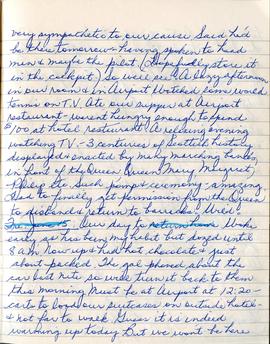 very sympathetic to our cause Said he'd
be there tomorrow - having spoken to head
men & maybe the pilot (Hopefully store it
in the cockpit) so we'll see. A lazy afternoon
in our room & in Airport Watched some world
tennis on T.V. Ate our supper at Airport
restaurant - weren't hungry enough to spend
$100 at hotel restaurant. A relaxing evening
watching TV - 3 centuries of Scottish history
displayed & enacted by many marching bands
in front of the Queen Queen Mary, Margret,
Philip etc Such pomp & ceremony - amazing
Had to finally get permission from the Queen
to disband & return to barracks. Wed.
Our day to return home Woke
early as has being my habit but dozed until
8 am Now ups & had hot chocolate & just
about packed. The gal phoned about the
car last nite so well turn it back to them
this morning Must be at Airport at 12:20 -
carts to load our suitcases on outside hotel -
& not far to walk Guess it is indeed
warming up today But we wont be here